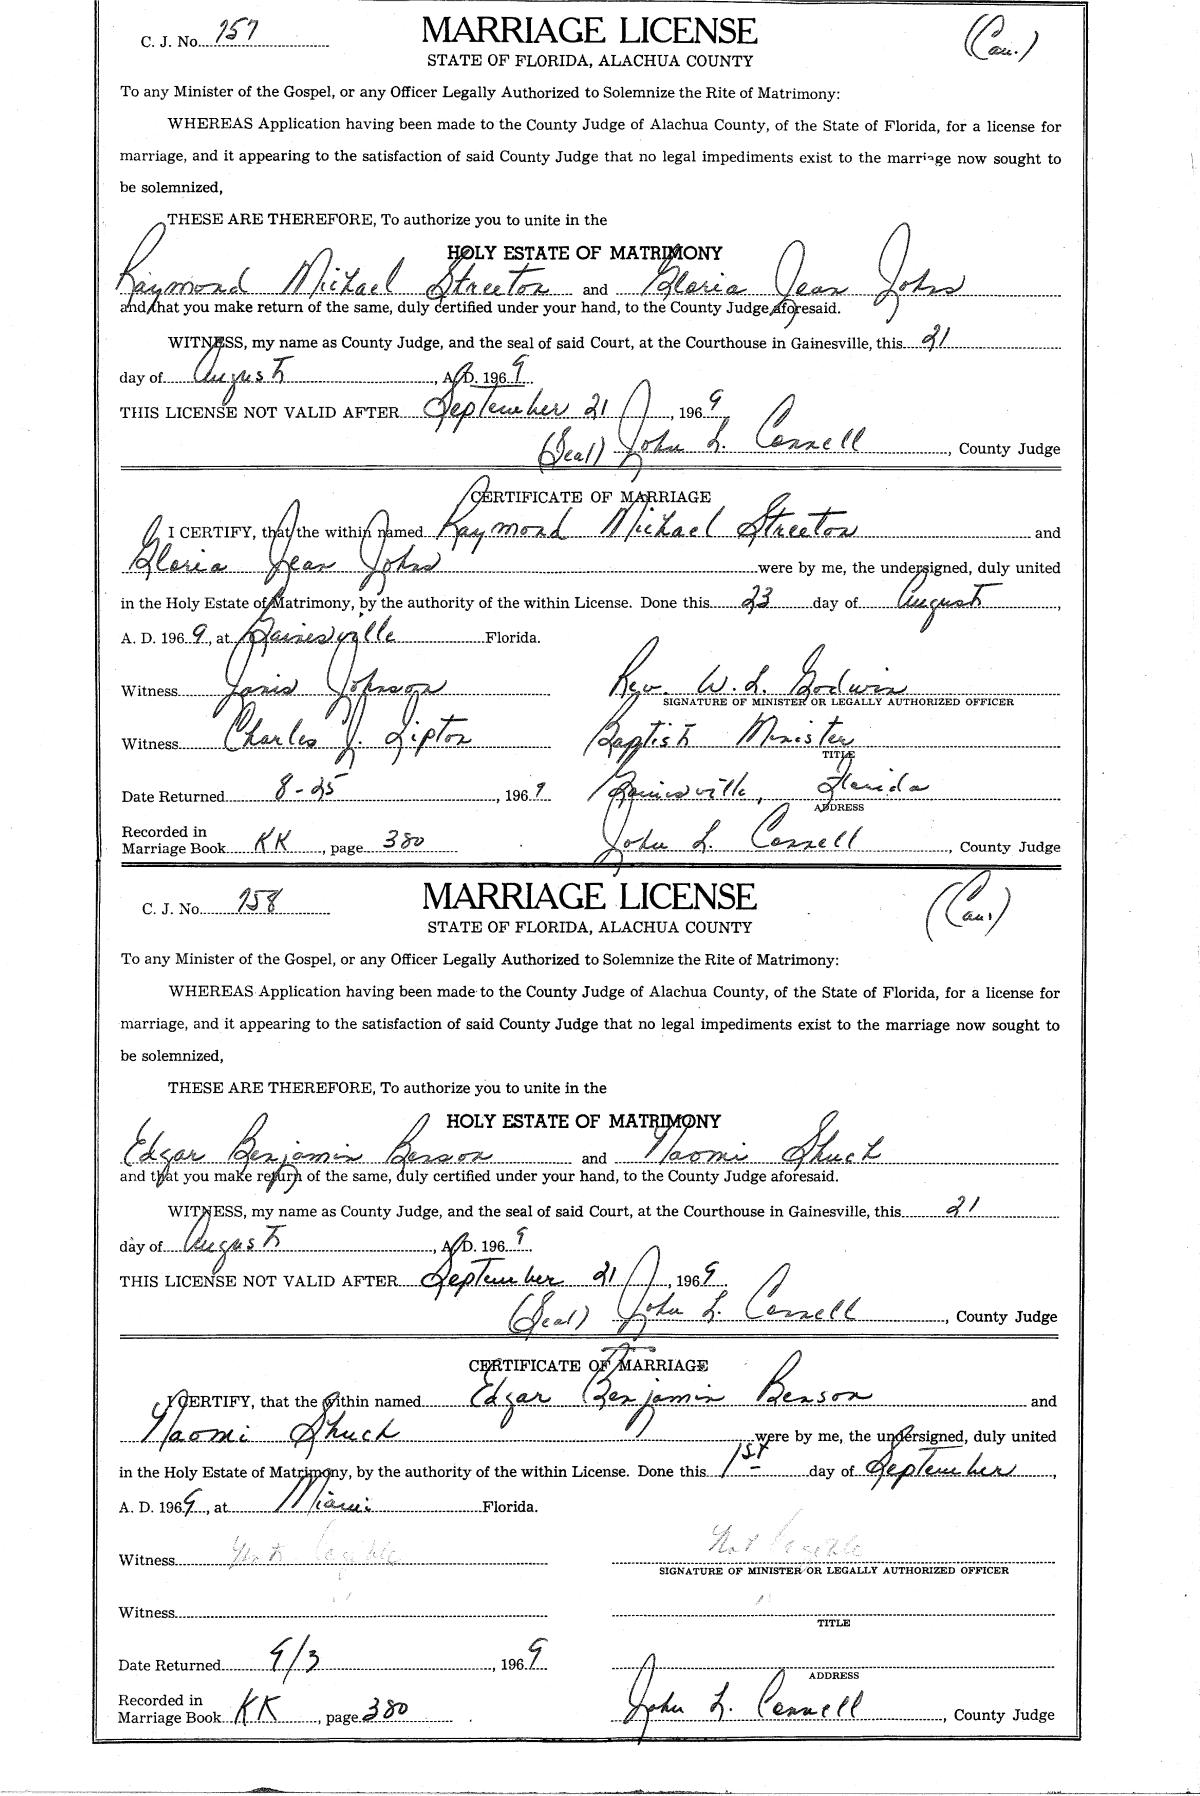 C. J. No. 757 MARRIAGE LICENSE (Cau.)
STATE OF FLORIDA, ALACHUA COUNTY
To any Minister of the Gospel, or any Officer Legally Authorized to Solemnize the Rite of Matrimony:
WHEREAS Application having been made to the County Judge of Alachua County, of the State of Florida, for a license for
marriage, and it appearing to the satisfaction of said County Judge that no legal impediments exist to the marriage now sought to
be solemnized,
THESE ARE THEREFORE, To authorize you to unite in the
HOLY ESTATE OF MATRIMONY
Raymond Michael Streeton and Gloria Jean Johns
and that you make return of the same, duly certified under your hand, to the County Judge aforesaid.
WITNESS, my name as County Judge, and the seal of said Court, at the Courthouse in Gainesville, this 21
day of August, A. D. 1969.
THIS LICENSE NOT VALID AFTER September 21, 1969
(Seal) John L. Connell, County Judge
CERTIFICATE OF MARRIAGE
I CERTIFY, that the within named Raymond Michael Streeton and
Gloria Jean Johns were by me, the undersigned, duly united
in the Holy Estate of Matrimony, by the authority of the within License. Done this 23 day of August,
A. D. 1969, at Gainesville Florida.
Witness Janis Johnson Rev. W. L. Godwin
SIGNATURE OF MINISTER OR LEGALLY AUTHORIZED OFFICER
Witness Charles J. Lipton Baptist Minister
TITLE
Date Returned 8-25, 1969 Gainesville, Florida
ADDRESS
Recorded in
Marriage Book KK, page 380 John L. Connell, County Judge
C. J. No. 758 MARRIAGE LICENSE (Cau.)
STATE OF FLORIDA, ALACHUA COUNTY
To any Minister of the Gospel, or any Officer Legally Authorized to Solemnize the Rite of Matrimony:
WHEREAS Application having been made to the County Judge of Alachua County, of the State of Florida, for a license for
marriage, and it appearing to the satisfaction of said County Judge that no legal impediments exist to the marriage now sought to
be solemnized,
THESE ARE THEREFORE, To authorize you to unite in the
HOLY ESTATE OF MATRIMONY
Edgar Benjamin Benson and Naomi Shuch
and that you make return of the same, duly certified under your hand, to the County Judge aforesaid.
WITNESS, my name as County Judge, and the seal of said Court, at the Courthouse in Gainesville, this 21
day of August, A. D. 1969.
THIS LICENSE NOT VALID AFTER September 21, 1969.
(Seal) John L. Connell, County Judge
CERTIFICATE OF MARRIAGE
I CERTIFY, that the within named Edgar Benjamin Benson and
Naomi Shuch were by me, the undersigned, duly united
in the Holy Estate of Matrimony, by the authority of the within License. Done this 1st day of September,
A. D. 1969, at Miami Florida.
Witness Not legible Not legible
SIGNATURE OF MINISTER OR LEGALLY AUTHORIZED OFFICER
Witness " "
TITLE
Date Returned 9/3, 1969
ADDRESS
Recorded in
Marriage Book KK, page 380 John L. Connell, County Judge